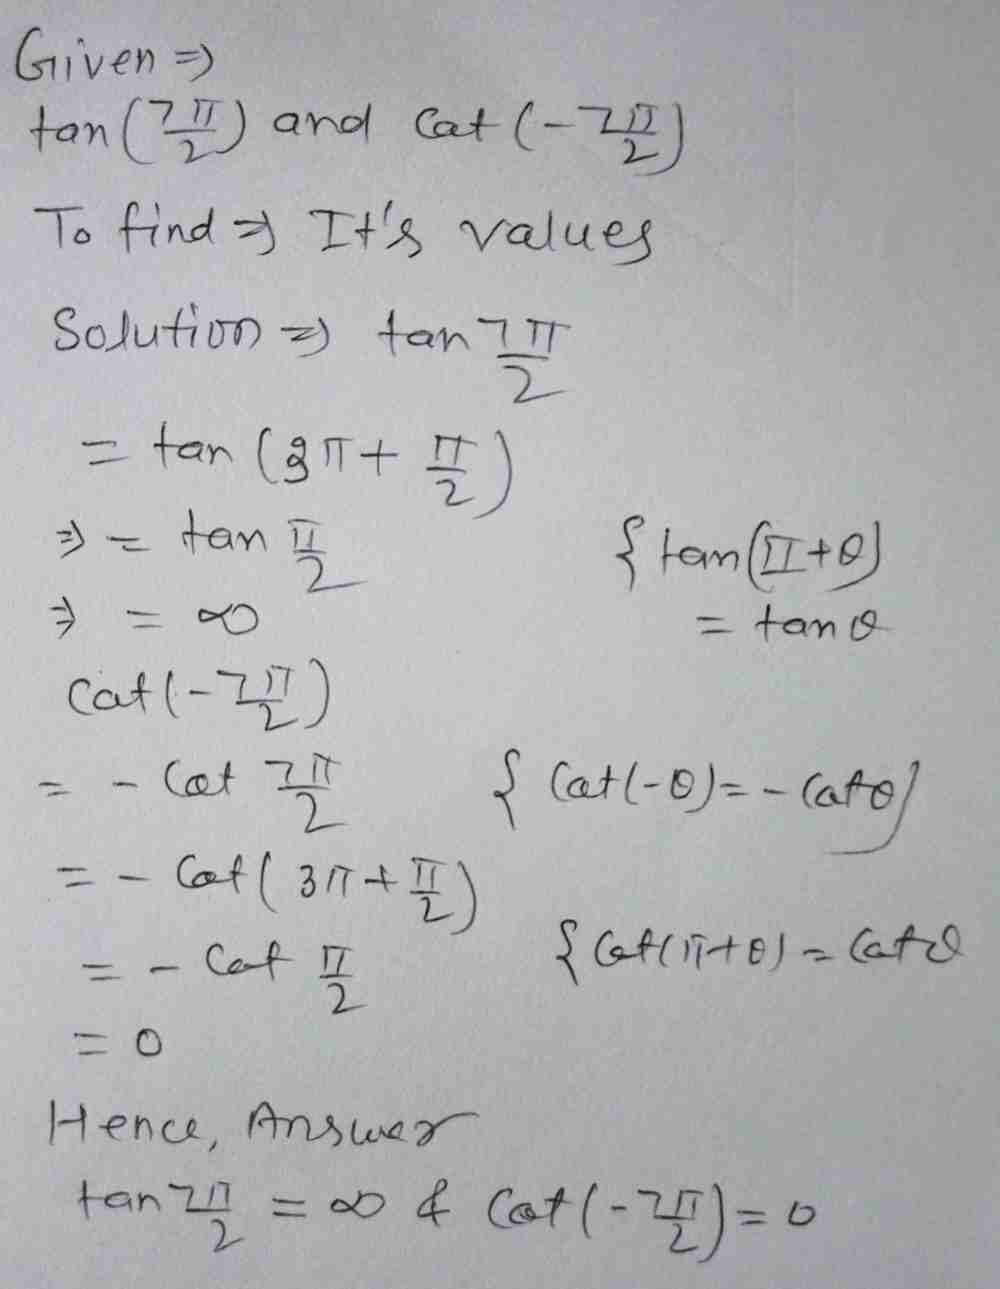 Given ⇒
tan(7π/2) and cat(-7π/2)
To find ⇒ It's values
Solution ⇒ tan 7π/2
= tan (3π + π/2)
⇒ = tan π/2
{ tan(π+θ)
= tan θ
⇒ = ∞
cat(-7π/2)
= - Cot 7π/2 { Cat(-θ) = - Catθ}
= - Cot( 3π + π/2)
= - Cot π/2 { Cot(π+θ) = Catθ
= 0
Hence, Answer
tan 7π/2 = ∞ & Cot(-7π/2) = 0